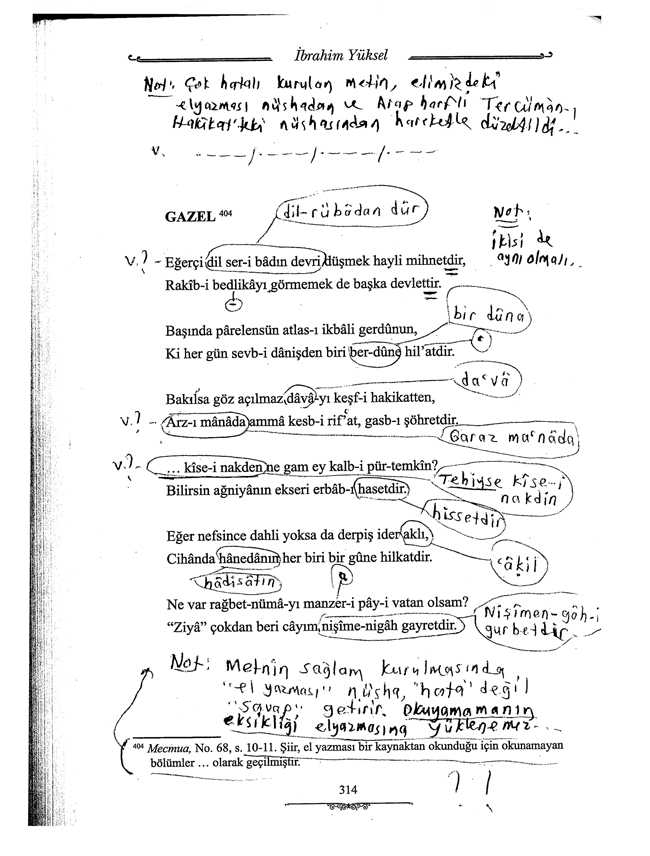 İbrahim Yüksel
Not: Çok hatalı kurulan metin, elimizdeki
elyazması nüshadan ve Arap harfli Tercümân-ı
Hakikat'teki nüshasından hareketle düzeltildi...
v. _ . _ _ / . _ _ _ / . _ _ _ / . _ _ _
GAZEL 404
dil-rübâdan dûr
Not:
ikisi de
aynı olmalı...
v.? - Eğerçi dil ser-i bâdın devri düşmek hayli mihnetdir,
Rakîb-i bedlikâyı görmemek de başka devlettir.
bir dûna
Başında pârelensün atlas-ı ikbâli gerdûnun,
Ki her gün sevb-i dânişden biri ber-dûne hil'atdir.
da'vâ
Bakılsa göz açılmaz dâvâ-yı keşf-i hakikatten,
v.? - Ârz-ı mânâda ammâ kesb-i rif'at, gasb-ı şöhretdir.
Garaz ma'nâda
v.? - ... kîse-i nakden ne gam ey kalb-i pür-temkîn?
Tehiyse kîse-i
nakdin
Bilirsin ağniyânın ekseri erbâb-ı hasetdir.
hissetdir
Eğer nefsince dahli yoksa da derpiş ider aklı,
'âkil
Cihânda hânedânın her biri bir gûne hilkatdir.
hâdisâtın
a
Ne var rağbet-nümâ-yı manzer-i pây-i vatan olsam?
"Ziyâ" çokdan beri câyım nişîme-nigâh gayretdir.
Nişîmen-gâh-i
gurbetdir
Not: Metnin sağlam kurulmasında
"el yazması" nüsha, "hata" değil
"savap" getirir. Okuyamamanın
eksikliği elyazmasına yüklenemez...
404 Mecmua, No. 68, s. 10-11. Şiir, el yazması bir kaynaktan okunduğu için okunamayan
bölümler ... olarak geçilmiştir.
? !
314